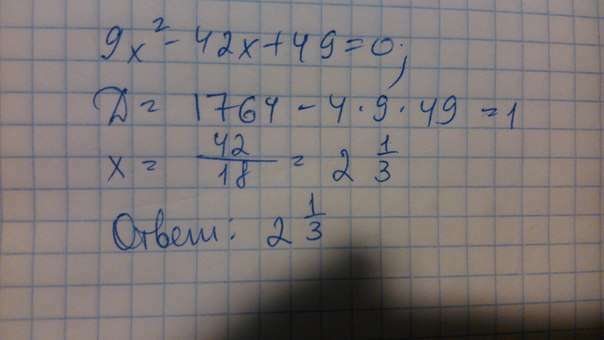 9x² - 42x + 49 = 0;
D = 1764 - 4·9·49 = 1
x = 42/18 = 2 1/3
Ответ: 2 1/3